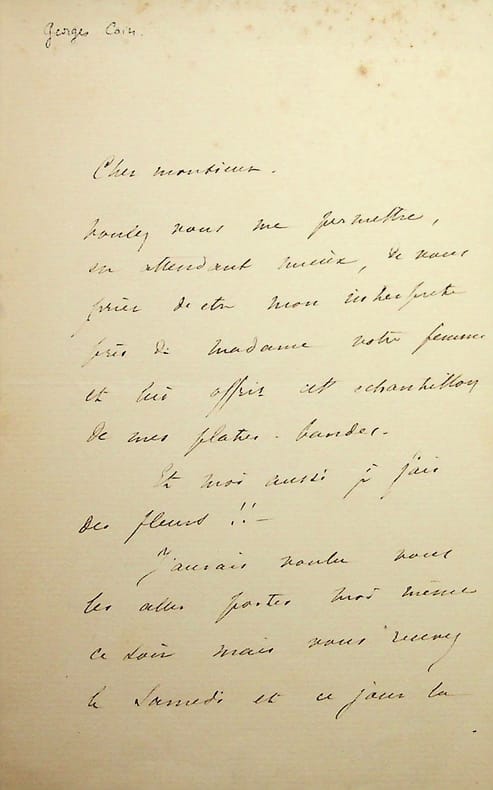 Georges Cain.
Cher monsieur.
voulez vous me permettre,
en attendant mieux, de vous
prier de etre mon interprete
près de madame votre femme
et lui offrir cet echantillon
de mes plates-bandes.
Et moi aussi je fais
des fleurs !! -
J'aurais voulu vous
les aller porter moi même
ce soir mais vous recevez
le Samedi et ce jour la